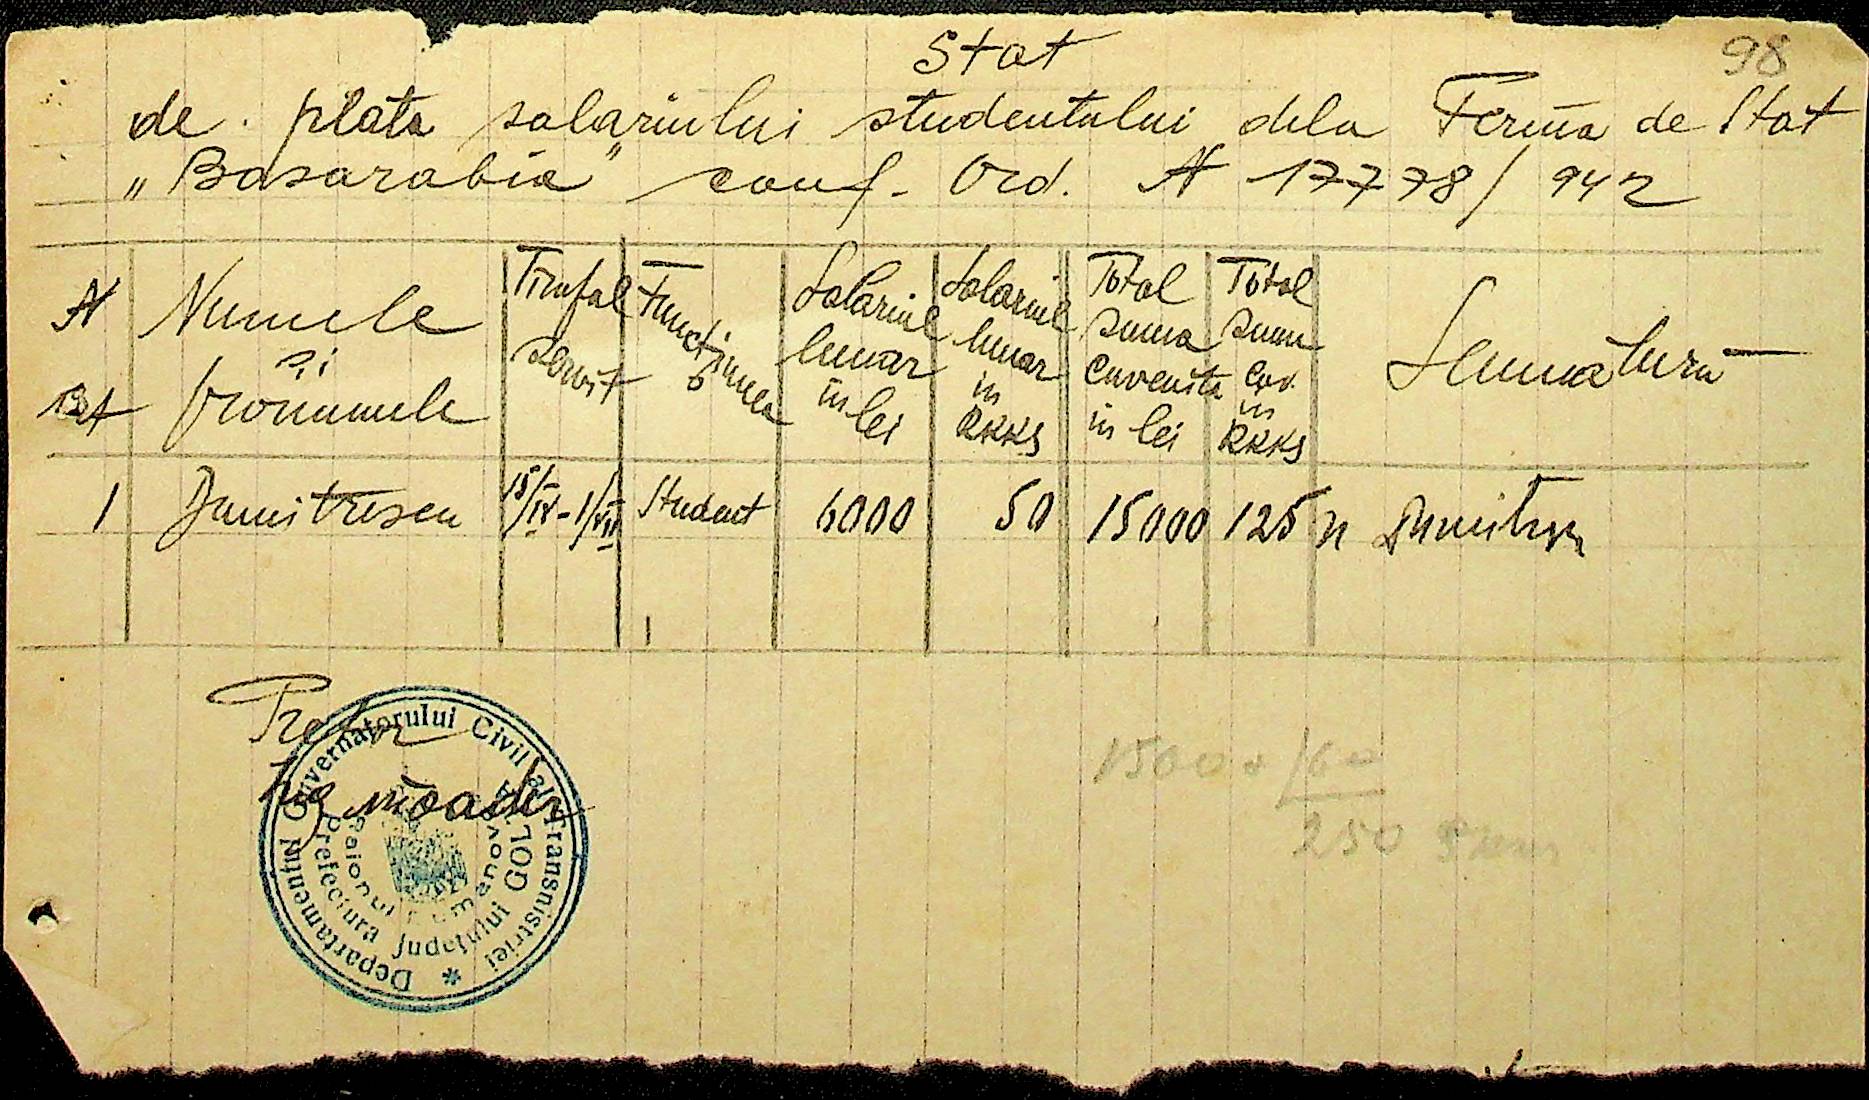 98
Stat
de plata salariului studentului dela Ferma de Stat
„Basarabia” conf. Ord. N 17778/942
N Bt
Numele și pronumele
Timpul servit
Funcțiunea
Salariul lunar in lei
Salariul lunar in RKKS
Total suma cuvenita in lei
Total suma cuv. in RKKS
Semnatura
1 Dumitrescu 15/IV-1/VII Student 6000 50 15000 125
Pretor
Departamentul Guvernatorului Civil al Transnistriei
Prefectura Județului GOLTA
Raionul
15000/60
250